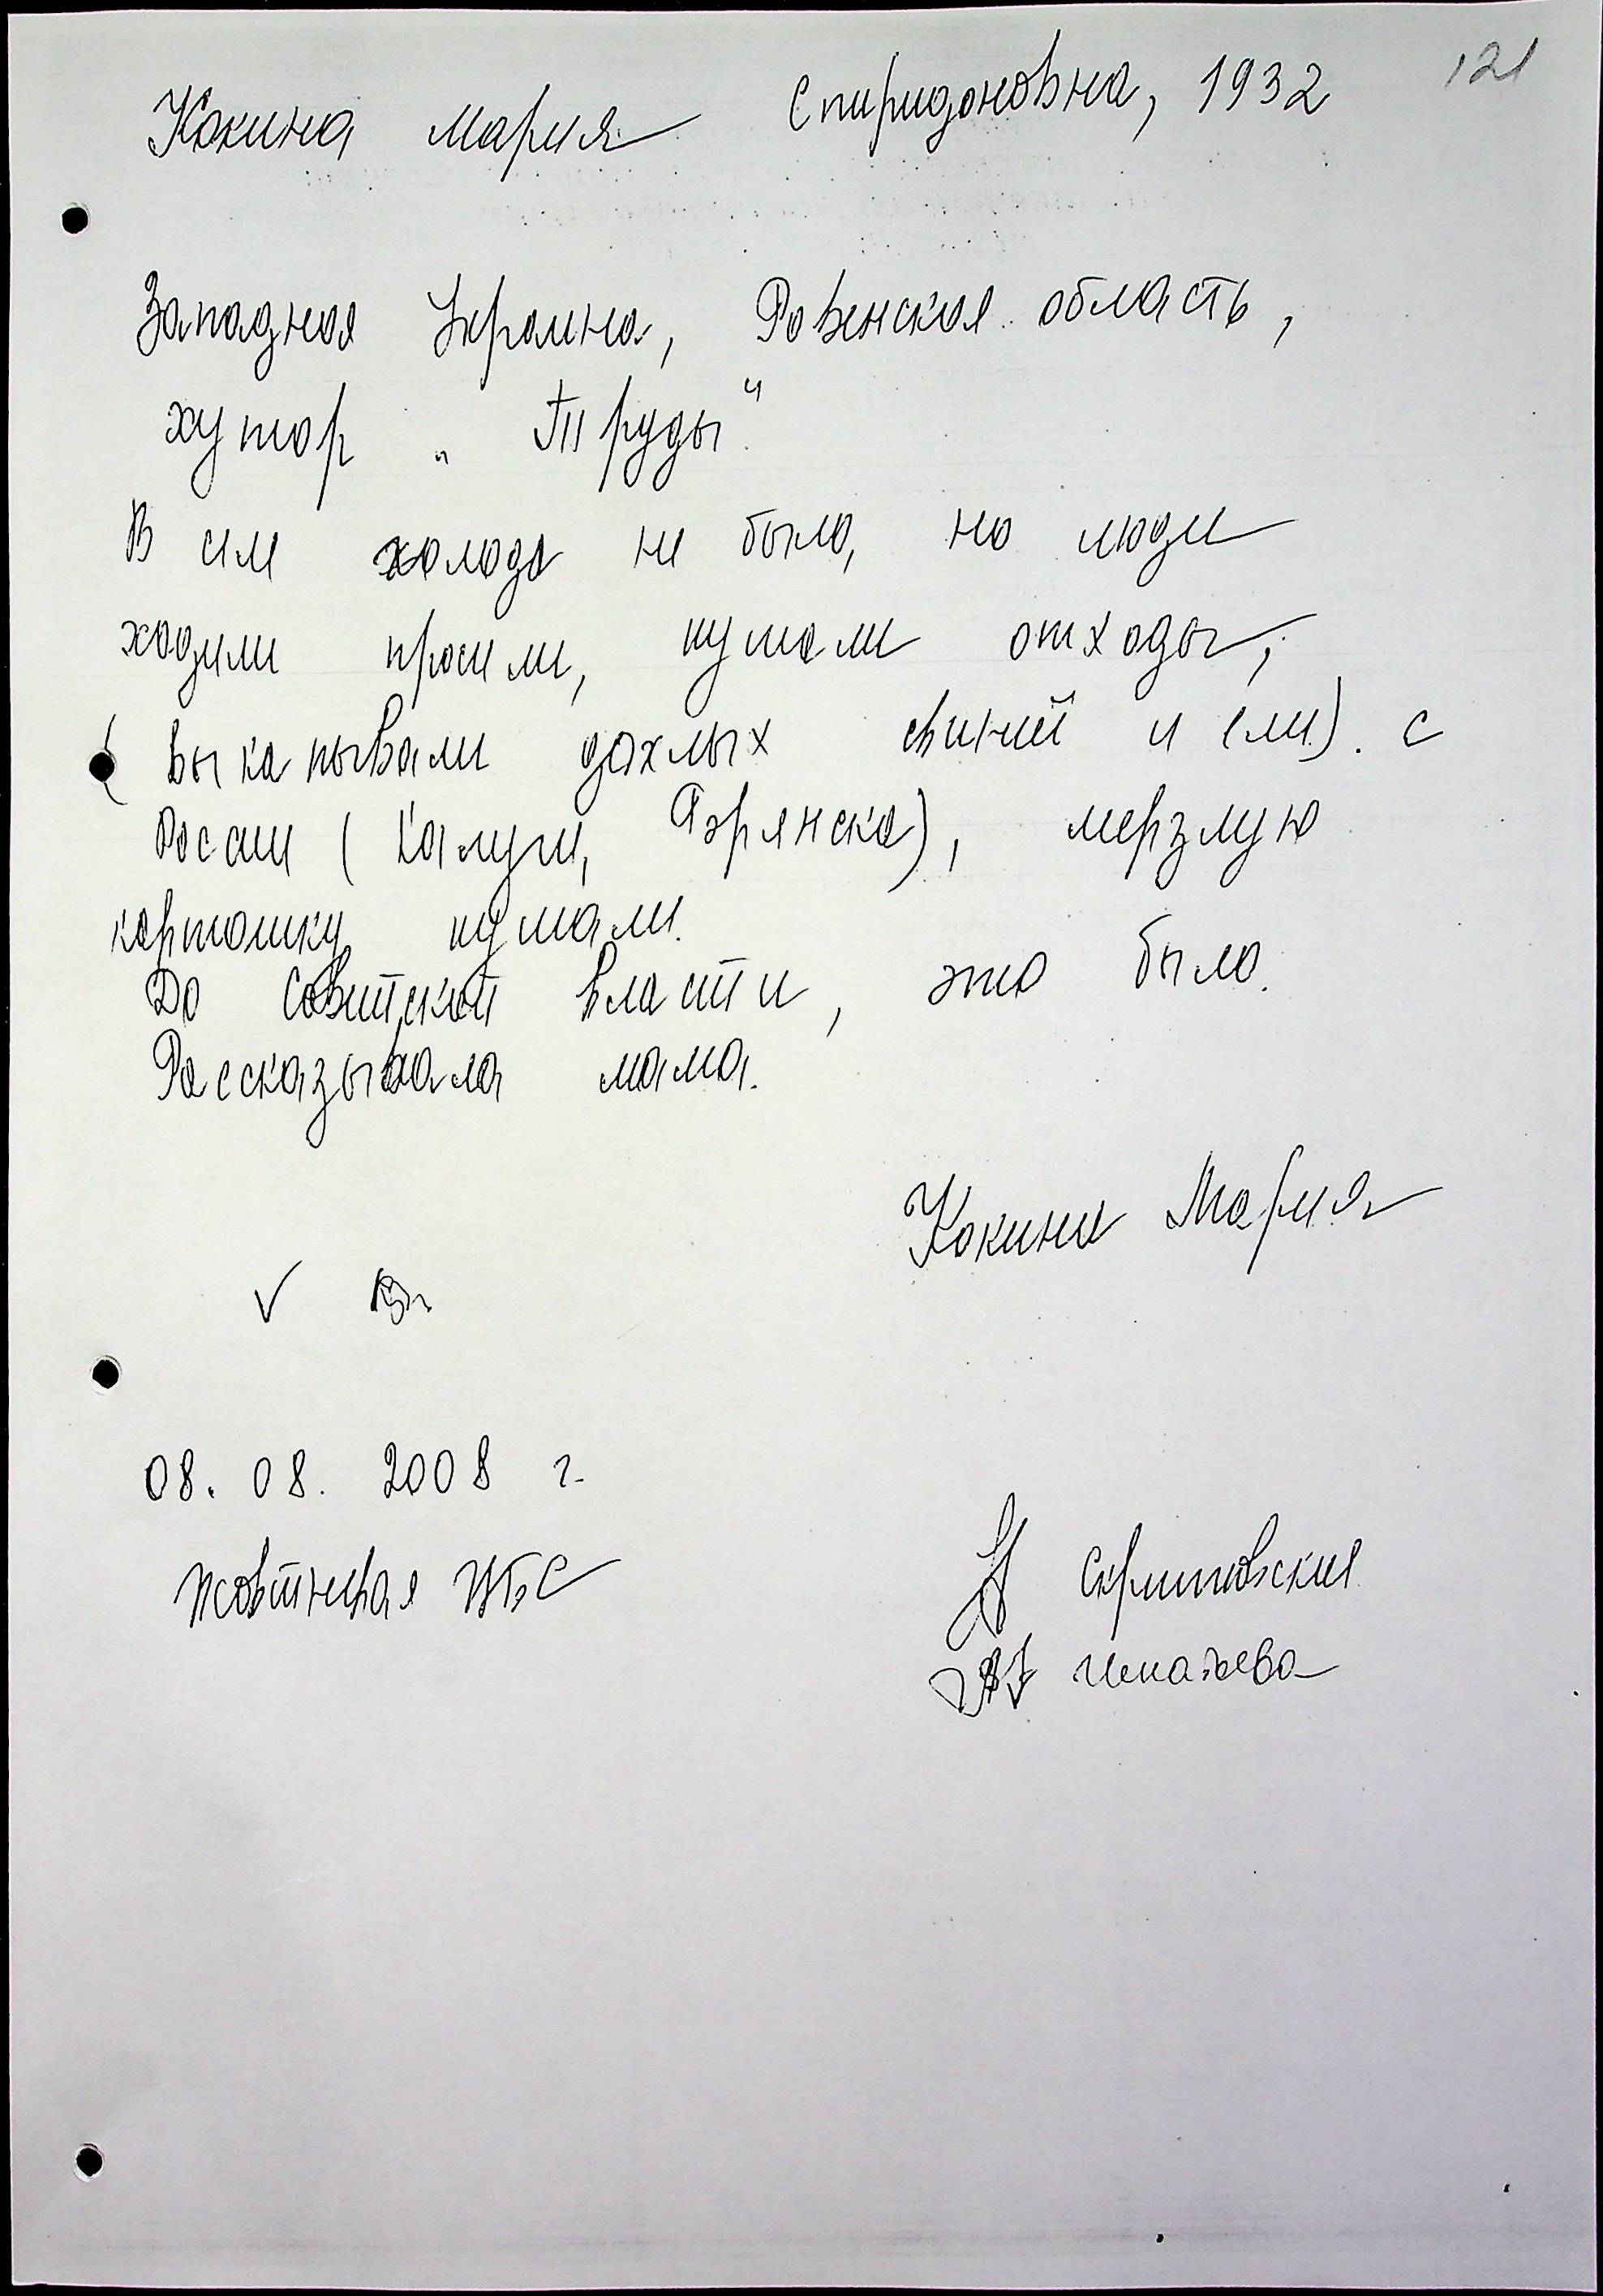 121
Кокина Мария Спиридоновна, 1932
Западная Украина, Ровенская область,
хутор „Пруды"
В селе холода не было, но люди
ходили просили, кушали отходы,
(выкапывали дохлых свиней и ели). с
России (Калуги, Брянска), мерзлую
картошку кушали.
До Советской власти, это было.
Рассказывала мама.
Кокина Мария
08.08.2008 г.
Жовтневая ЦБС